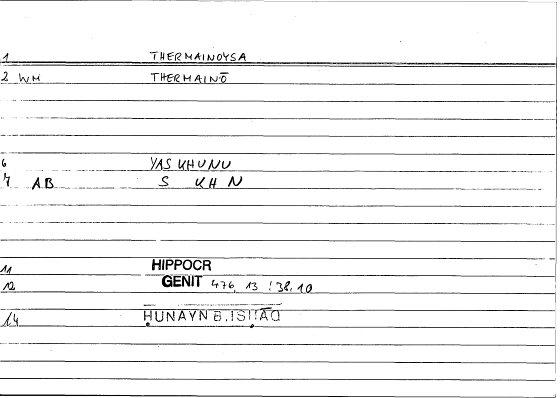 1 THERMAINOYSA
2 WM THERMAINŌ
6 YASKHUNU
7 AB S KH N
11 HIPPOCR
12 GENIT 476, 13 / 38, 10
14 ḤUNAYN B. ISḤĀQ